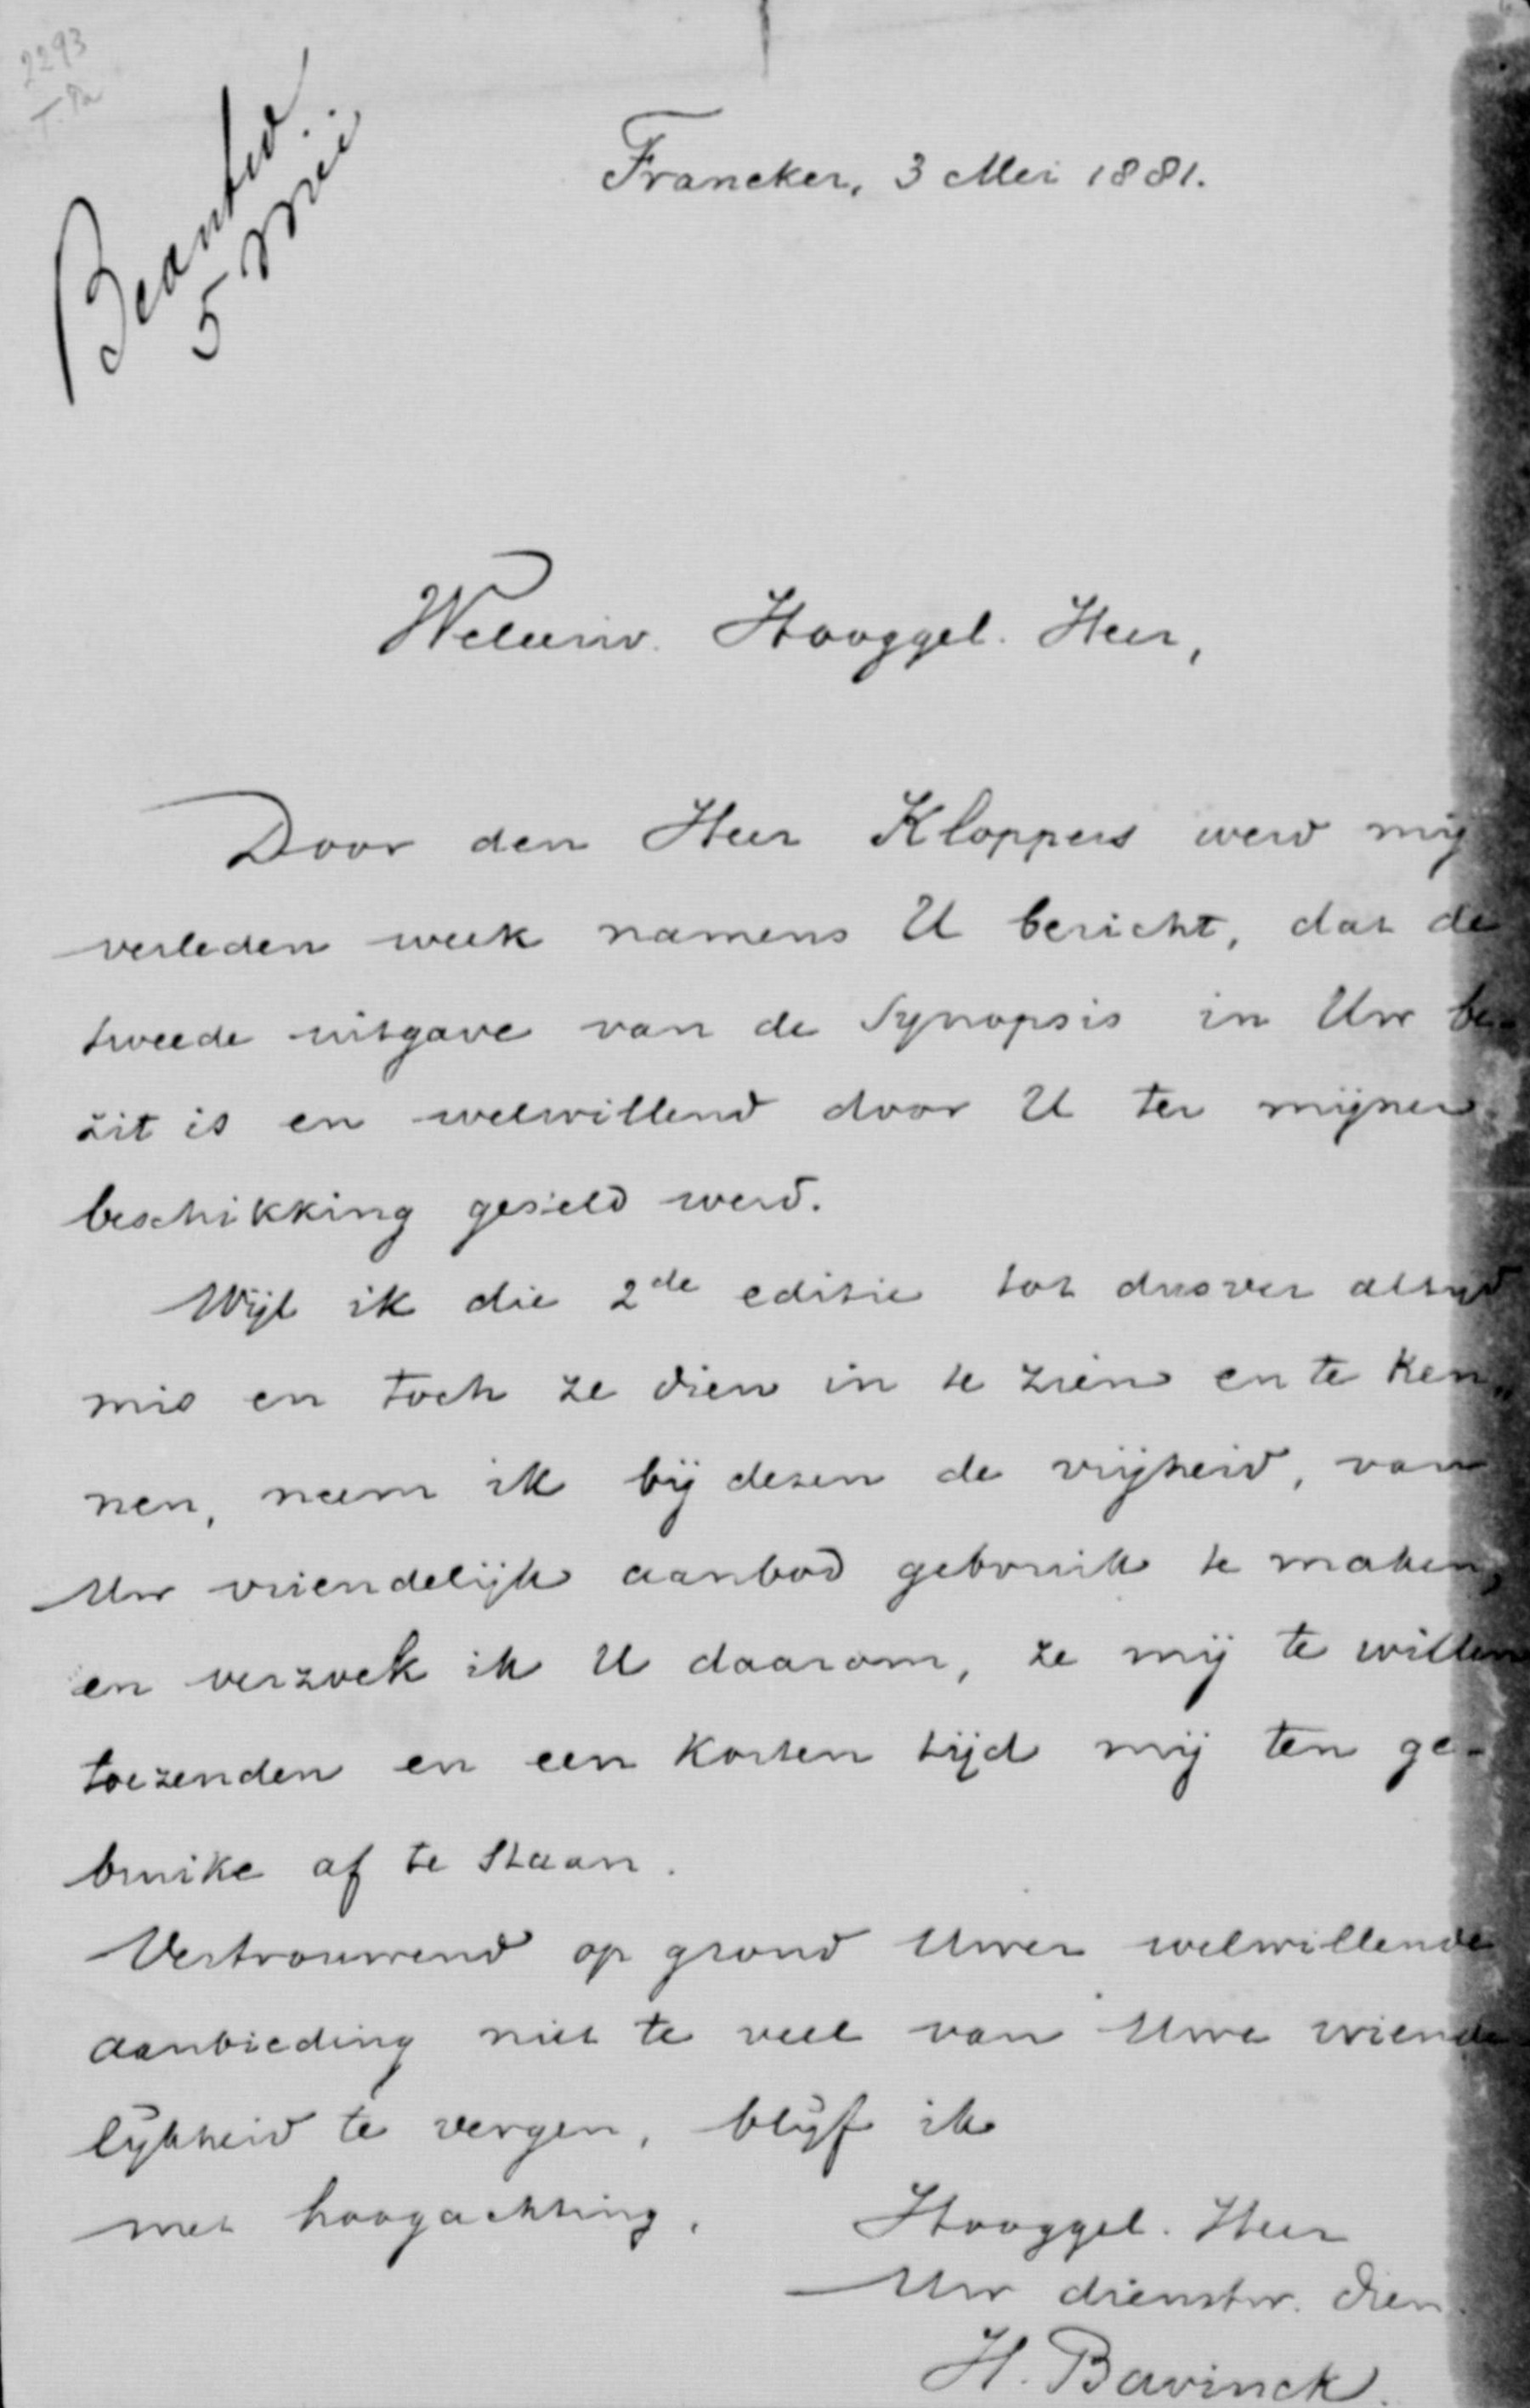 2293
Beantw.
5 Mei
Franeker, 3 Mei 1881.
Weleerw. Hooggel. Heer,
Door den Heer Kloppers werd mij
verleden week namens U bericht, dat de
tweede uitgave van de Synopsis in Uw be-
zit is en welwillend door U ter mijner
beschikking gesteld werd.
Wijl ik die 2de editie tot dusver altijd
mis en toch ze dien in te zien en te ken„
nen, neem ik bij dezen de vrijheid, van
Uw vriendelijk aanbod gebruik te maken,
en verzoek ik U daarom, ze mij te willen
toezenden en een korten tijd mij ten ge-
bruike af te staan.
Vertrouwend op grond Uwer welwillende
aanbieding niet te veel van Uwe vriende-
lijkheid te vergen, blijf ik
met hoogachting,
Hooggel. Heer
Uw dienstw. dien.
H. Bavinck.